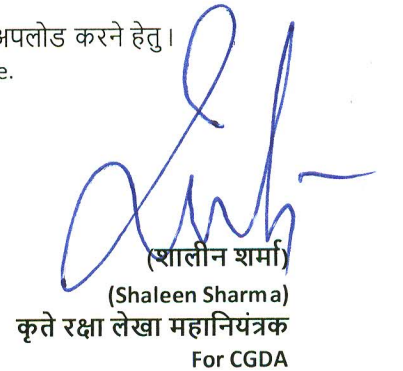 अपलोड करने हेतु।
e.
(शालीन शर्मा)
(Shaleen Sharma)
कृते रक्षा लेखा महानियंत्रक
For CGDA